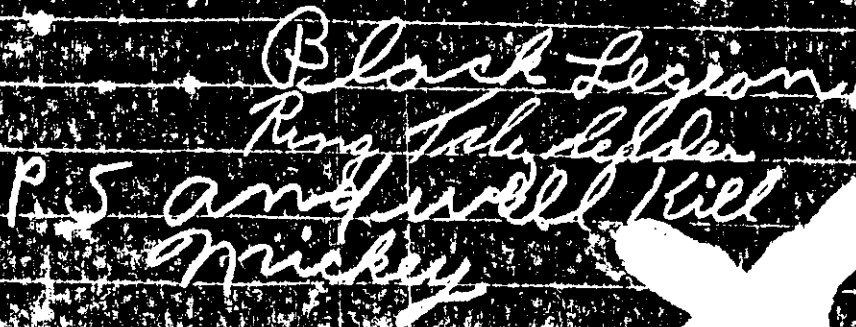 Black Legion
Ring Leader
P.S and well Kill
Mickey